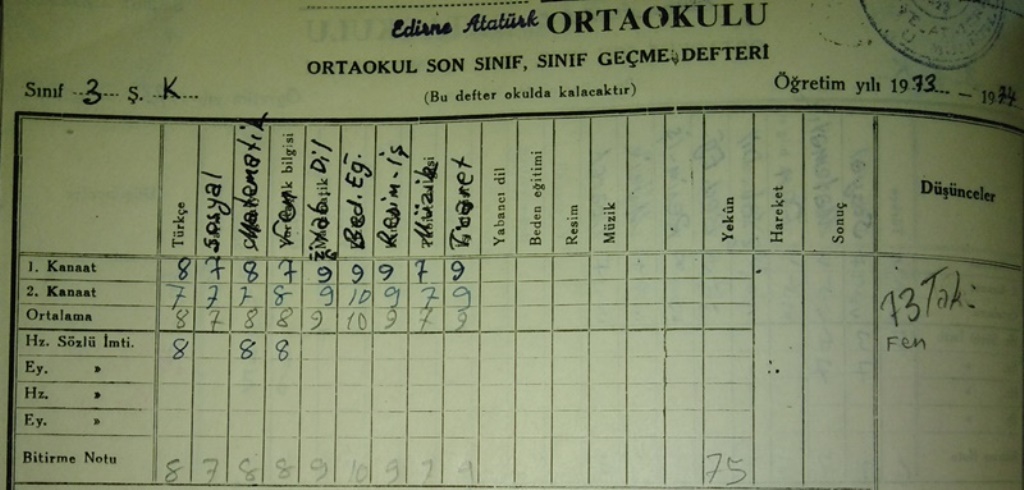 Edirne Atatürk ORTAOKULU
ORTAOKUL SON SINIF, SINIF GEÇME DEFTERİ
Sınıf 3 Ş. K (Bu defter okulda kalacaktır) Öğretim yılı 1973 — 1974
Türkçe Sosyal Matematik Fen bilgisi Yab. Dil Bed. Eğ. Resim-iş Müzik Ticaret Yabancı dil Beden eğitimi Resim Müzik Yekûn Hareket Sonuç Düşünceler
1. Kanaat 8 7 8 7 9 9 9 7 9
2. Kanaat 7 7 7 8 9 10 9 7 9 73 Tak:
Ortalama 8 7 8 8 9 10 9 7 9
Hz. Sözlü İmti. 8 8 8 Fen
Ey. »
Hz. »
Ey. »
Bitirme Notu 8 7 8 8 9 10 9 7 9 75